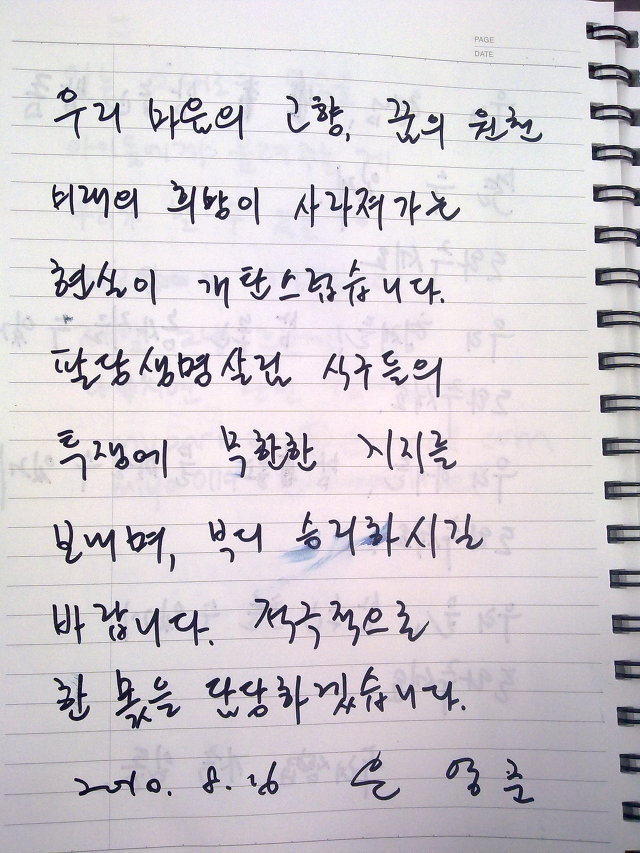 PAGE
DATE
우리 마음의 고향, 꿈의 원천
미래의 희망이 사라져가는
현실이 개탄스럽습니다.
팔당생명살림 식구들의
투쟁에 무한한 지지를
보내며, 부디 승리하시길
바랍니다. 적극적으로
한 몫을 담당하겠습니다.
2010. 8. 16 은 영준